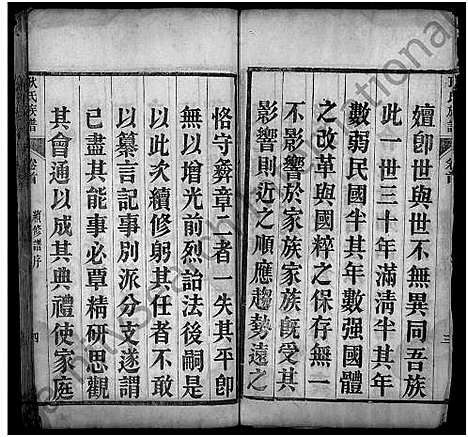 嬗卽世與世不無異同吾族
此一世三十年滿淸半其年
數弱民國半其年數强國體
之改革與國粹之保存無一
不影響於家族家族旣受其
影響則近之順應趨勢遠之
恪守彝章二者一失其平卽
無以增光前烈詒法後嗣是
以此次續修躬其任者不敢
以纂言記事別派分支遂謂
已盡其能事必覃精研思觀
其會通以成其典禮使家庭
氏族譜
卷首
續修譜序
四
三